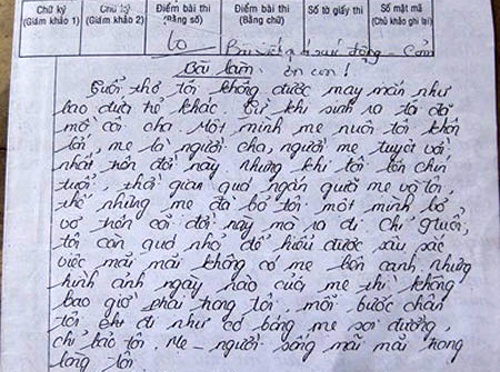 Chữ ký Chữ ký Điểm bài thi Điểm bài thi Số tờ giấy thi Số mật mã
(Giám khảo 1) (Giám khảo 2) (Bằng số) (Bằng chữ) (Chủ khảo ghi lại)
10 Bài viết quá xúc động - Cảm
Bài làm. ơn con!
Tuổi thơ tôi không được may mắn như
bao đứa trẻ khác. Từ khi sinh ra tôi đã
mồ côi cha. Một minh mẹ nuôi tôi khôn
lớn, mẹ là người cha, người mẹ tuyệt vời
nhất trên đời này. Nhưng khi tôi lên chín
tuổi, thời gian quá ngắn ngủi mẹ và tôi,
thế nhưng mẹ đã bỏ tôi một mình bơ
vơ trên cõi đời này mà ra đi. Chỉ 9 tuổi,
tôi còn quá nhỏ để hiểu được sâu sắc
việc mãi mãi không có mẹ bên cạnh, nhưng
hình ảnh ngày nào của mẹ thì không
bao giờ phai trong tôi, mỗi bước chân
tôi khi đi như có bóng mẹ soi đường,
chỉ bảo tôi. Mẹ - người sống mãi mãi trong
lòng tôi.